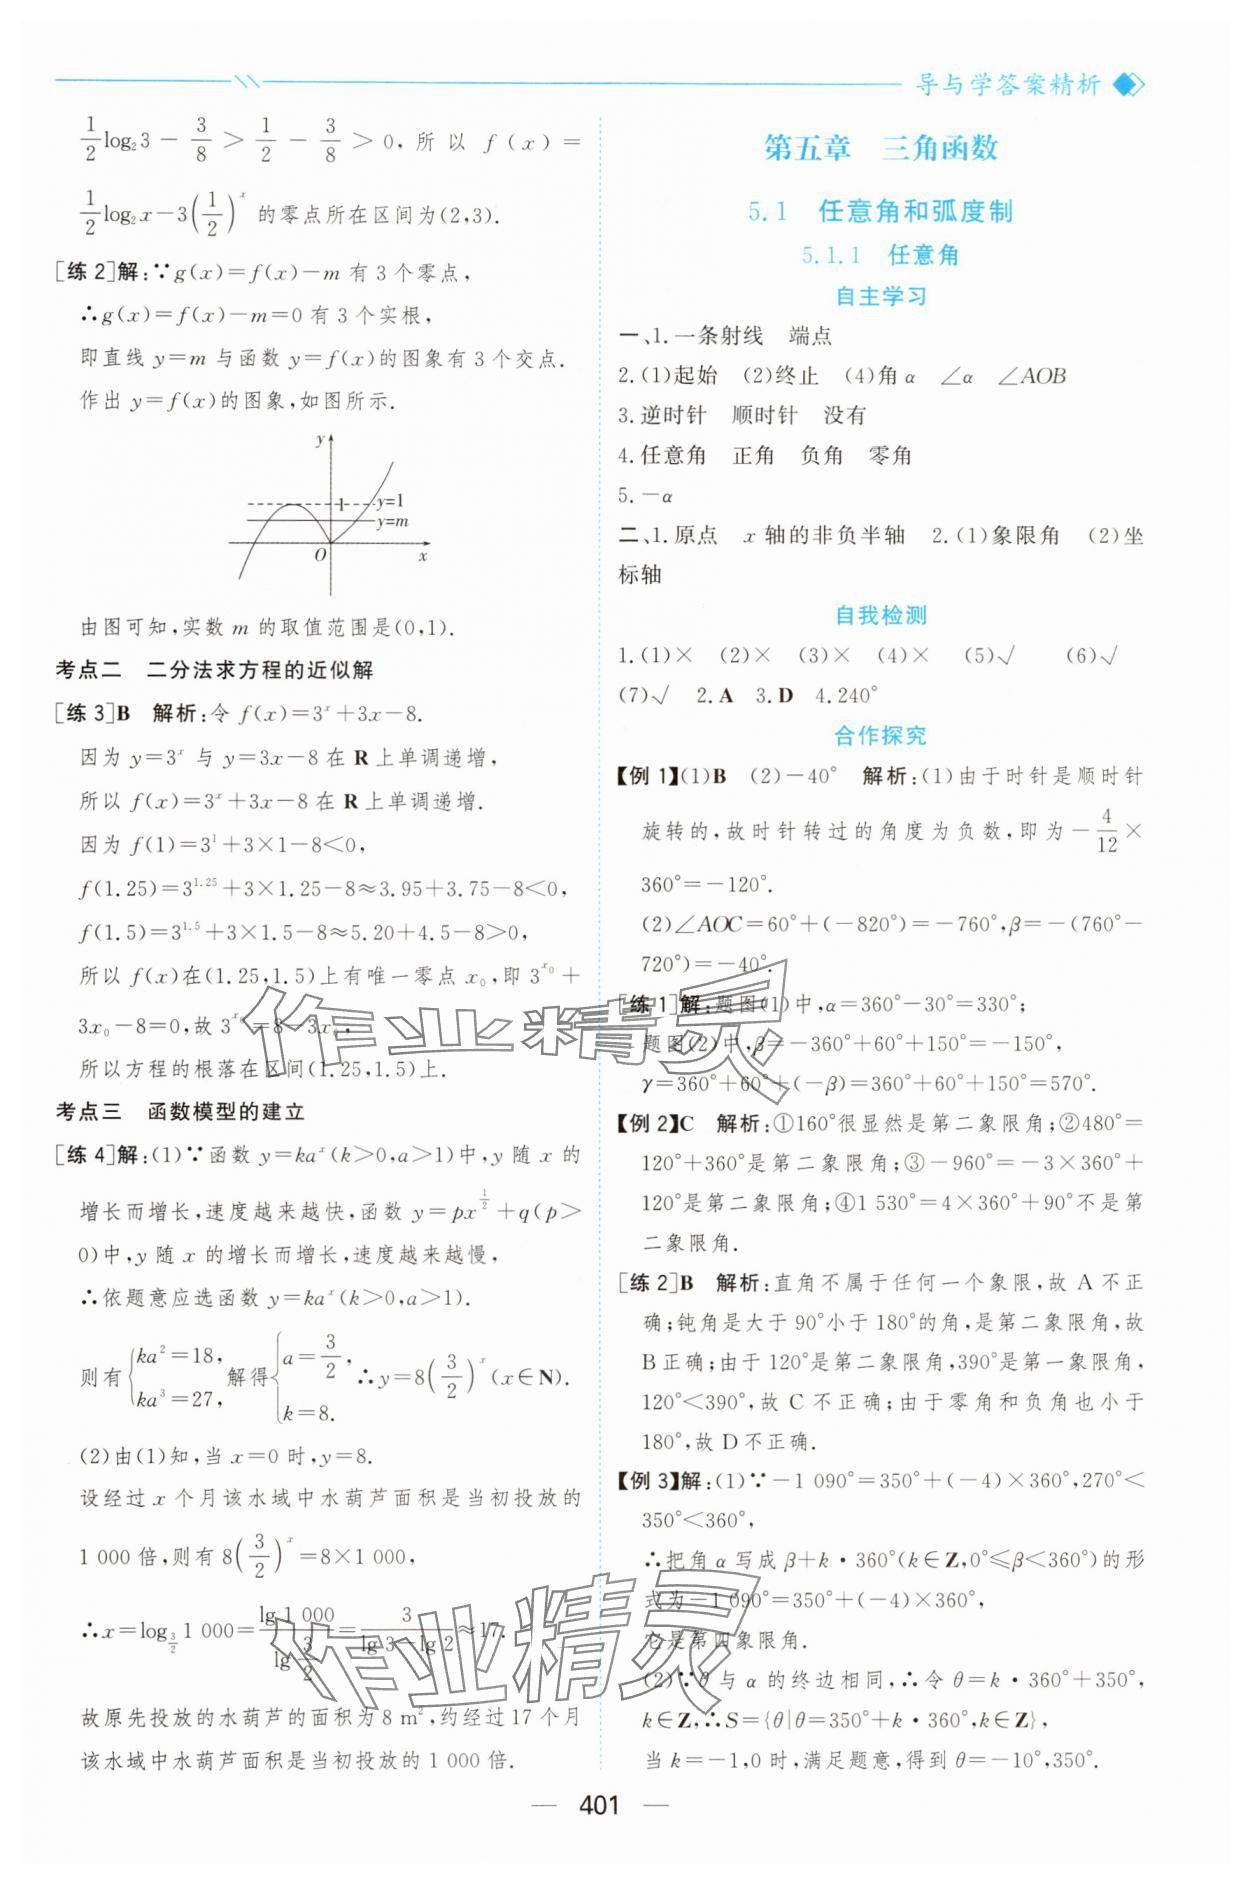 导与学答案精析
$\frac{1}{2}\log_2 3-\frac{3}{8}>\frac{1}{2}-\frac{3}{8}>0$,所以 $f(x)=$
$\frac{1}{2}\log_2 x-3\left(\frac{1}{2}\right)^x$ 的零点所在区间为(2,3).
[练2]解:∵g(x)=f(x)-m 有3个零点,
∴g(x)=f(x)-m=0 有3个实根,
即直线 y=m 与函数 y=f(x)的图象有3个交点.
作出 y=f(x)的图象,如图所示.
y
1
y=1
y=m
O
x
由图可知,实数 m 的取值范围是(0,1).
考点二 二分法求方程的近似解
[练3]B 解析:令 $f(x)=3^x+3x-8$.
因为 $y=3^x$ 与 y=3x-8 在 R 上单调递增,
所以 $f(x)=3^x+3x-8$ 在 R 上单调递增.
因为 $f(1)=3^1+3×1-8<0$,
$f(1.25)=3^{1.25}+3×1.25-8≈3.95+3.75-8<0$,
$f(1.5)=3^{1.5}+3×1.5-8≈5.20+4.5-8>0$,
所以 f(x)在(1.25,1.5)上有唯一零点 $x_0$,即 $3^{x_0}+$
$3x_0-8=0$,故 $3^{x_0}=8-3x_0$,
所以方程的根落在区间(1.25,1.5)上.
考点三 函数模型的建立
[练4]解:(1)∵函数 $y=ka^x(k>0,a>1)$中,y 随 x 的
增长而增长,速度越来越快,函数 $y=px^{\frac{1}{2}}+q(p>$
0)中,y 随 x 的增长而增长,速度越来越慢,
∴依题意应选函数 $y=ka^x(k>0,a>1)$.
则有 $\begin{cases}ka^2=18,\\ka^3=27,\end{cases}$ 解得 $\begin{cases}a=\frac{3}{2},\\k=8.\end{cases}$ ∴$y=8\left(\frac{3}{2}\right)^x(x∈N)$.
(2)由(1)知,当 x=0 时,y=8.
设经过 x 个月该水域中水葫芦面积是当初投放的
1 000 倍,则有 $8\left(\frac{3}{2}\right)^x=8×1 000$,
∴$x=\log_{\frac{3}{2}}1 000=\frac{\lg 1 000}{\lg\frac{3}{2}}=\frac{3}{\lg 3-\lg 2}≈17$.
故原先投放的水葫芦的面积为 8 m²,约经过 17 个月
该水域中水葫芦面积是当初投放的 1 000 倍.
第五章 三角函数
5.1 任意角和弧度制
5.1.1 任意角
自主学习
一、1.一条射线 端点
2.(1)起始 (2)终止 (4)角α ∠α ∠AOB
3.逆时针 顺时针 没有
4.任意角 正角 负角 零角
5.-α
二、1.原点 x 轴的非负半轴 2.(1)象限角 (2)坐
标轴
自我检测
1.(1)× (2)× (3)× (4)× (5)√ (6)√
(7)√ 2.A 3.D 4.240°
合作探究
【例1】(1)B (2)-40° 解析:(1)由于时针是顺时针
旋转的,故时针转过的角度为负数,即为 $-\frac{4}{12}×$
360°=-120°.
(2)∠AOC=60°+(-820°)=-760°,β=-(760°-
720°)=-40°.
[练1]解:题图(1)中,α=360°-30°=330°;
题图(2)中,β=-360°+60°+150°=-150°,
γ=360°+60°+(-β)=360°+60°+150°=570°.
【例2】C 解析:①160°很显然是第二象限角;②480°=
120°+360°是第二象限角;③-960°=-3×360°+
120°是第二象限角;④1 530°=4×360°+90°不是第
二象限角.
[练2]B 解析:直角不属于任何一个象限,故 A 不正
确;钝角是大于 90°小于 180°的角,是第二象限角,故
B正确;由于 120°是第二象限角,390°是第一象限角,
120°<390°,故 C 不正确;由于零角和负角也小于
180°,故 D不正确.
【例3】解:(1)∵-1 090°=350°+(-4)×360°,270°<
350°<360°,
∴把角 α 写成 β+k·360°(k∈Z,0°≤β<360°)的形
式为-1 090°=350°+(-4)×360°,
它是第四象限角.
(2)∵θ 与 α 的终边相同,∴令 θ=k·360°+350°,
k∈Z,∴S={θ|θ=350°+k·360°,k∈Z},
当 k=-1,0 时,满足题意,得到 θ=-10°,350°.
401
作业精灵
作业精灵